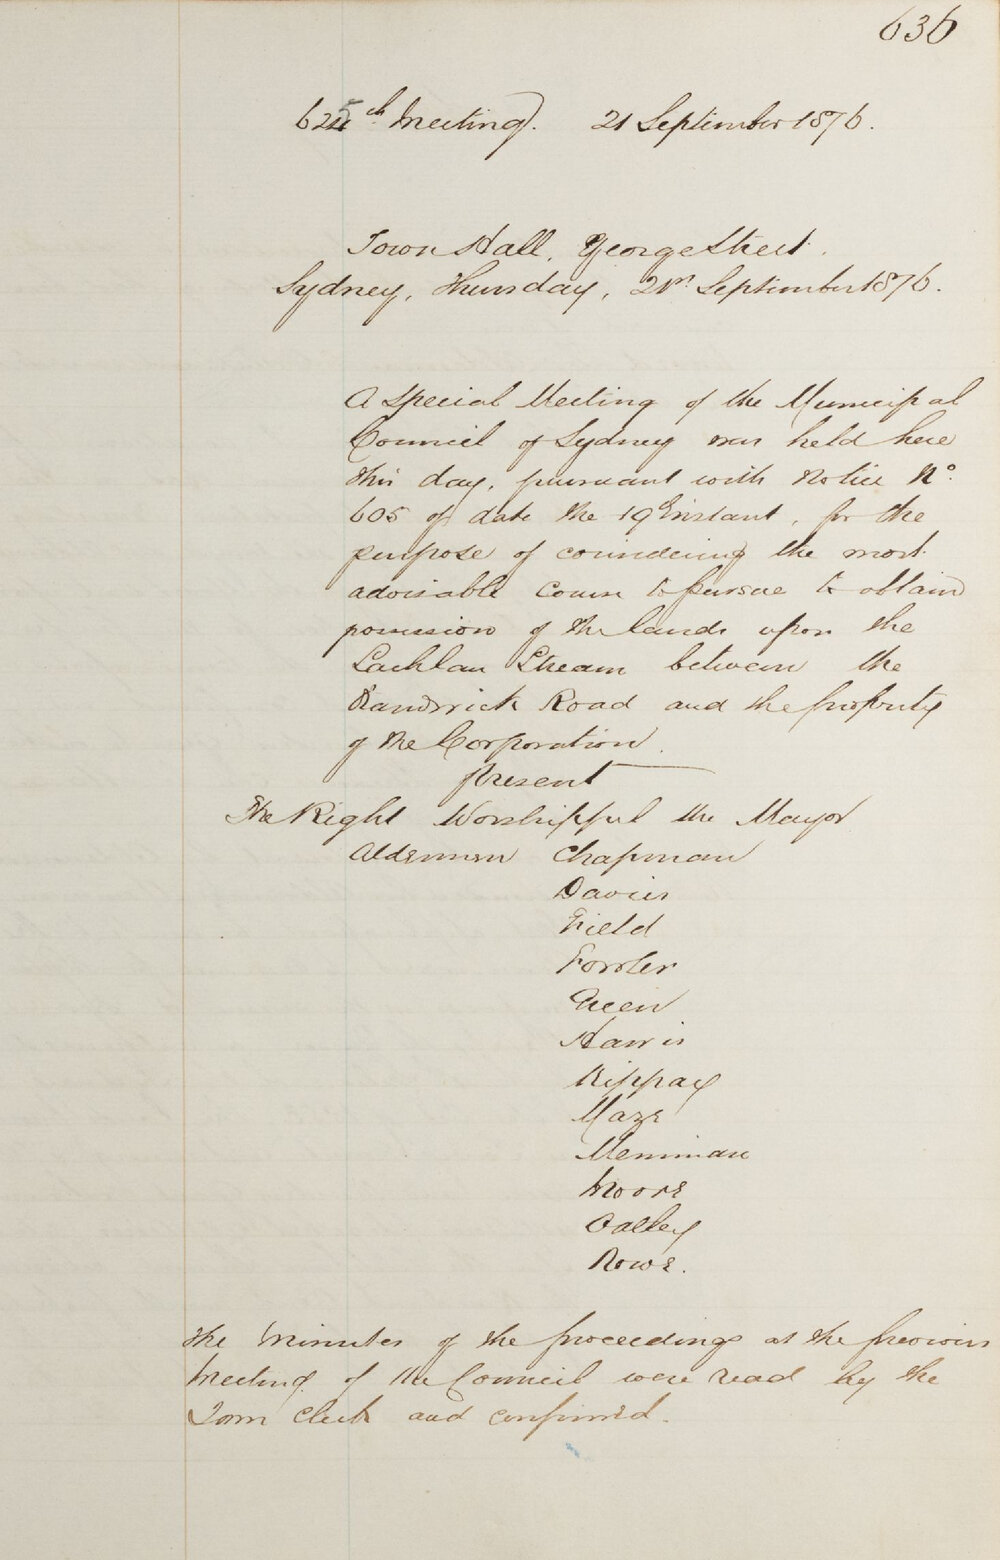 636
625th Meeting. 21 September 1876.
Town Hall, George Street.
Sydney, Thursday, 21st September 1876.
A Special Meeting of the Municipal
Council of Sydney was held here
this day, pursuant with Notice No.
605 of date the 19th Instant, for the
purpose of considering the most
advisable course to pursue to obtain
possession of the lands upon the
Lachlan Stream between the
Randwick Road and the property
of the Corporation.
Present
The Right Worshipful the Mayor
Aldermen Chapman
Davies
Field
Fowler
Green
Harris
Kippax
Maze
Merriman
Moore
Oatley
Rowe.
The Minutes of the proceedings at the previous
Meeting of the Council were read by the
Town Clerk and confirmed.